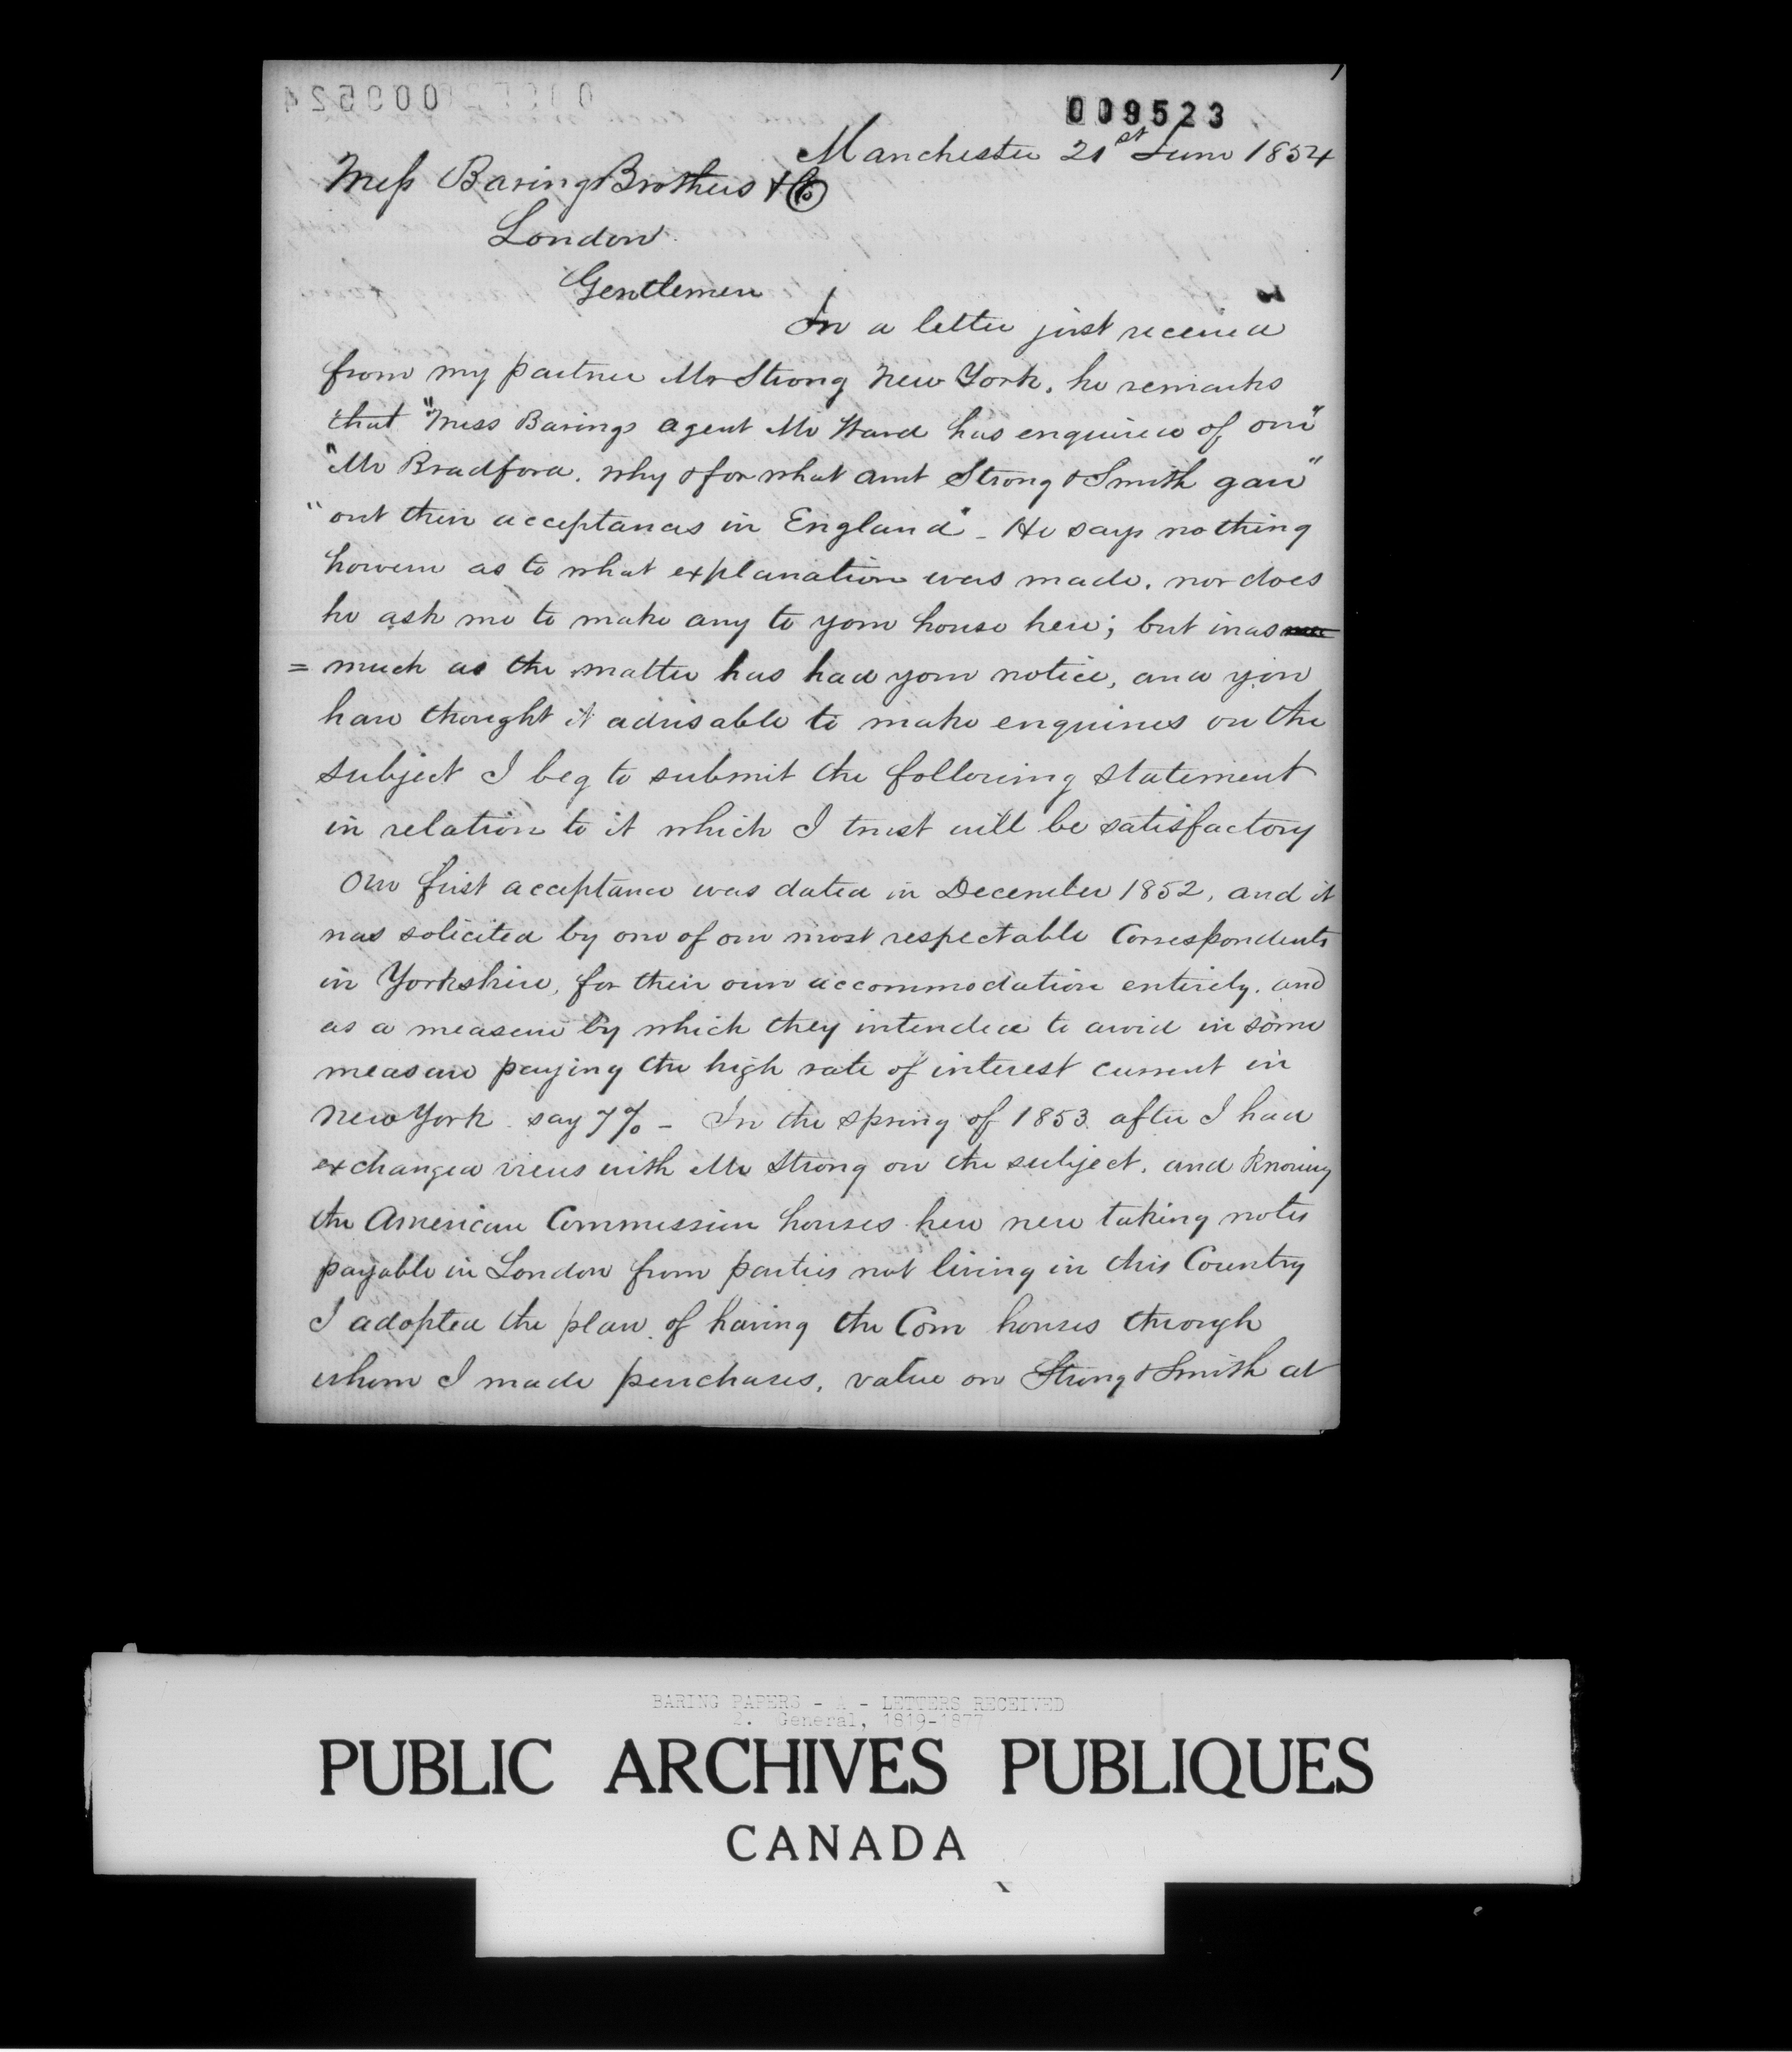 009523
Manchester 21st June 1854
Mess Baring Brothers & Co
London
Gentlemen
In a letter just received
from my partner Mr Strong New York, he remarks
that "Mess Barings agent Mr Ward has enquired of our"
"Mr Bradford, why & for what amt Strong & Smith gave"
"out their acceptances in England" - He says nothing
however as to what explanation was made, nor does
he ask me to make any to your house here; but inas
= much as the matter has had your notice, and you
have thought it advisable to make enquiries on the
subject I beg to submit the following statement
in relation to it which I trust will be satisfactory
Our first acceptance was dated in December 1852, and it
was solicited by one of our most respectable Correspondents
in Yorkshire, for their own accommodation entirely, and
as a measure by which they intended to avoid in some
measure paying the high rate of interest current in
New York say 7% - In the spring of 1853 after I had
exchanged views with Mr Strong on the subject, and knowing
the American Commission houses here were taking notes
payable in London from parties not living in this Country
I adopted the plan of having the Com houses through
whom I made purchases, value on Strong & Smith at
BARING PAPERS - A - LETTERS RECEIVED
2. General, 1819-1877
PUBLIC ARCHIVES PUBLIQUES
CANADA